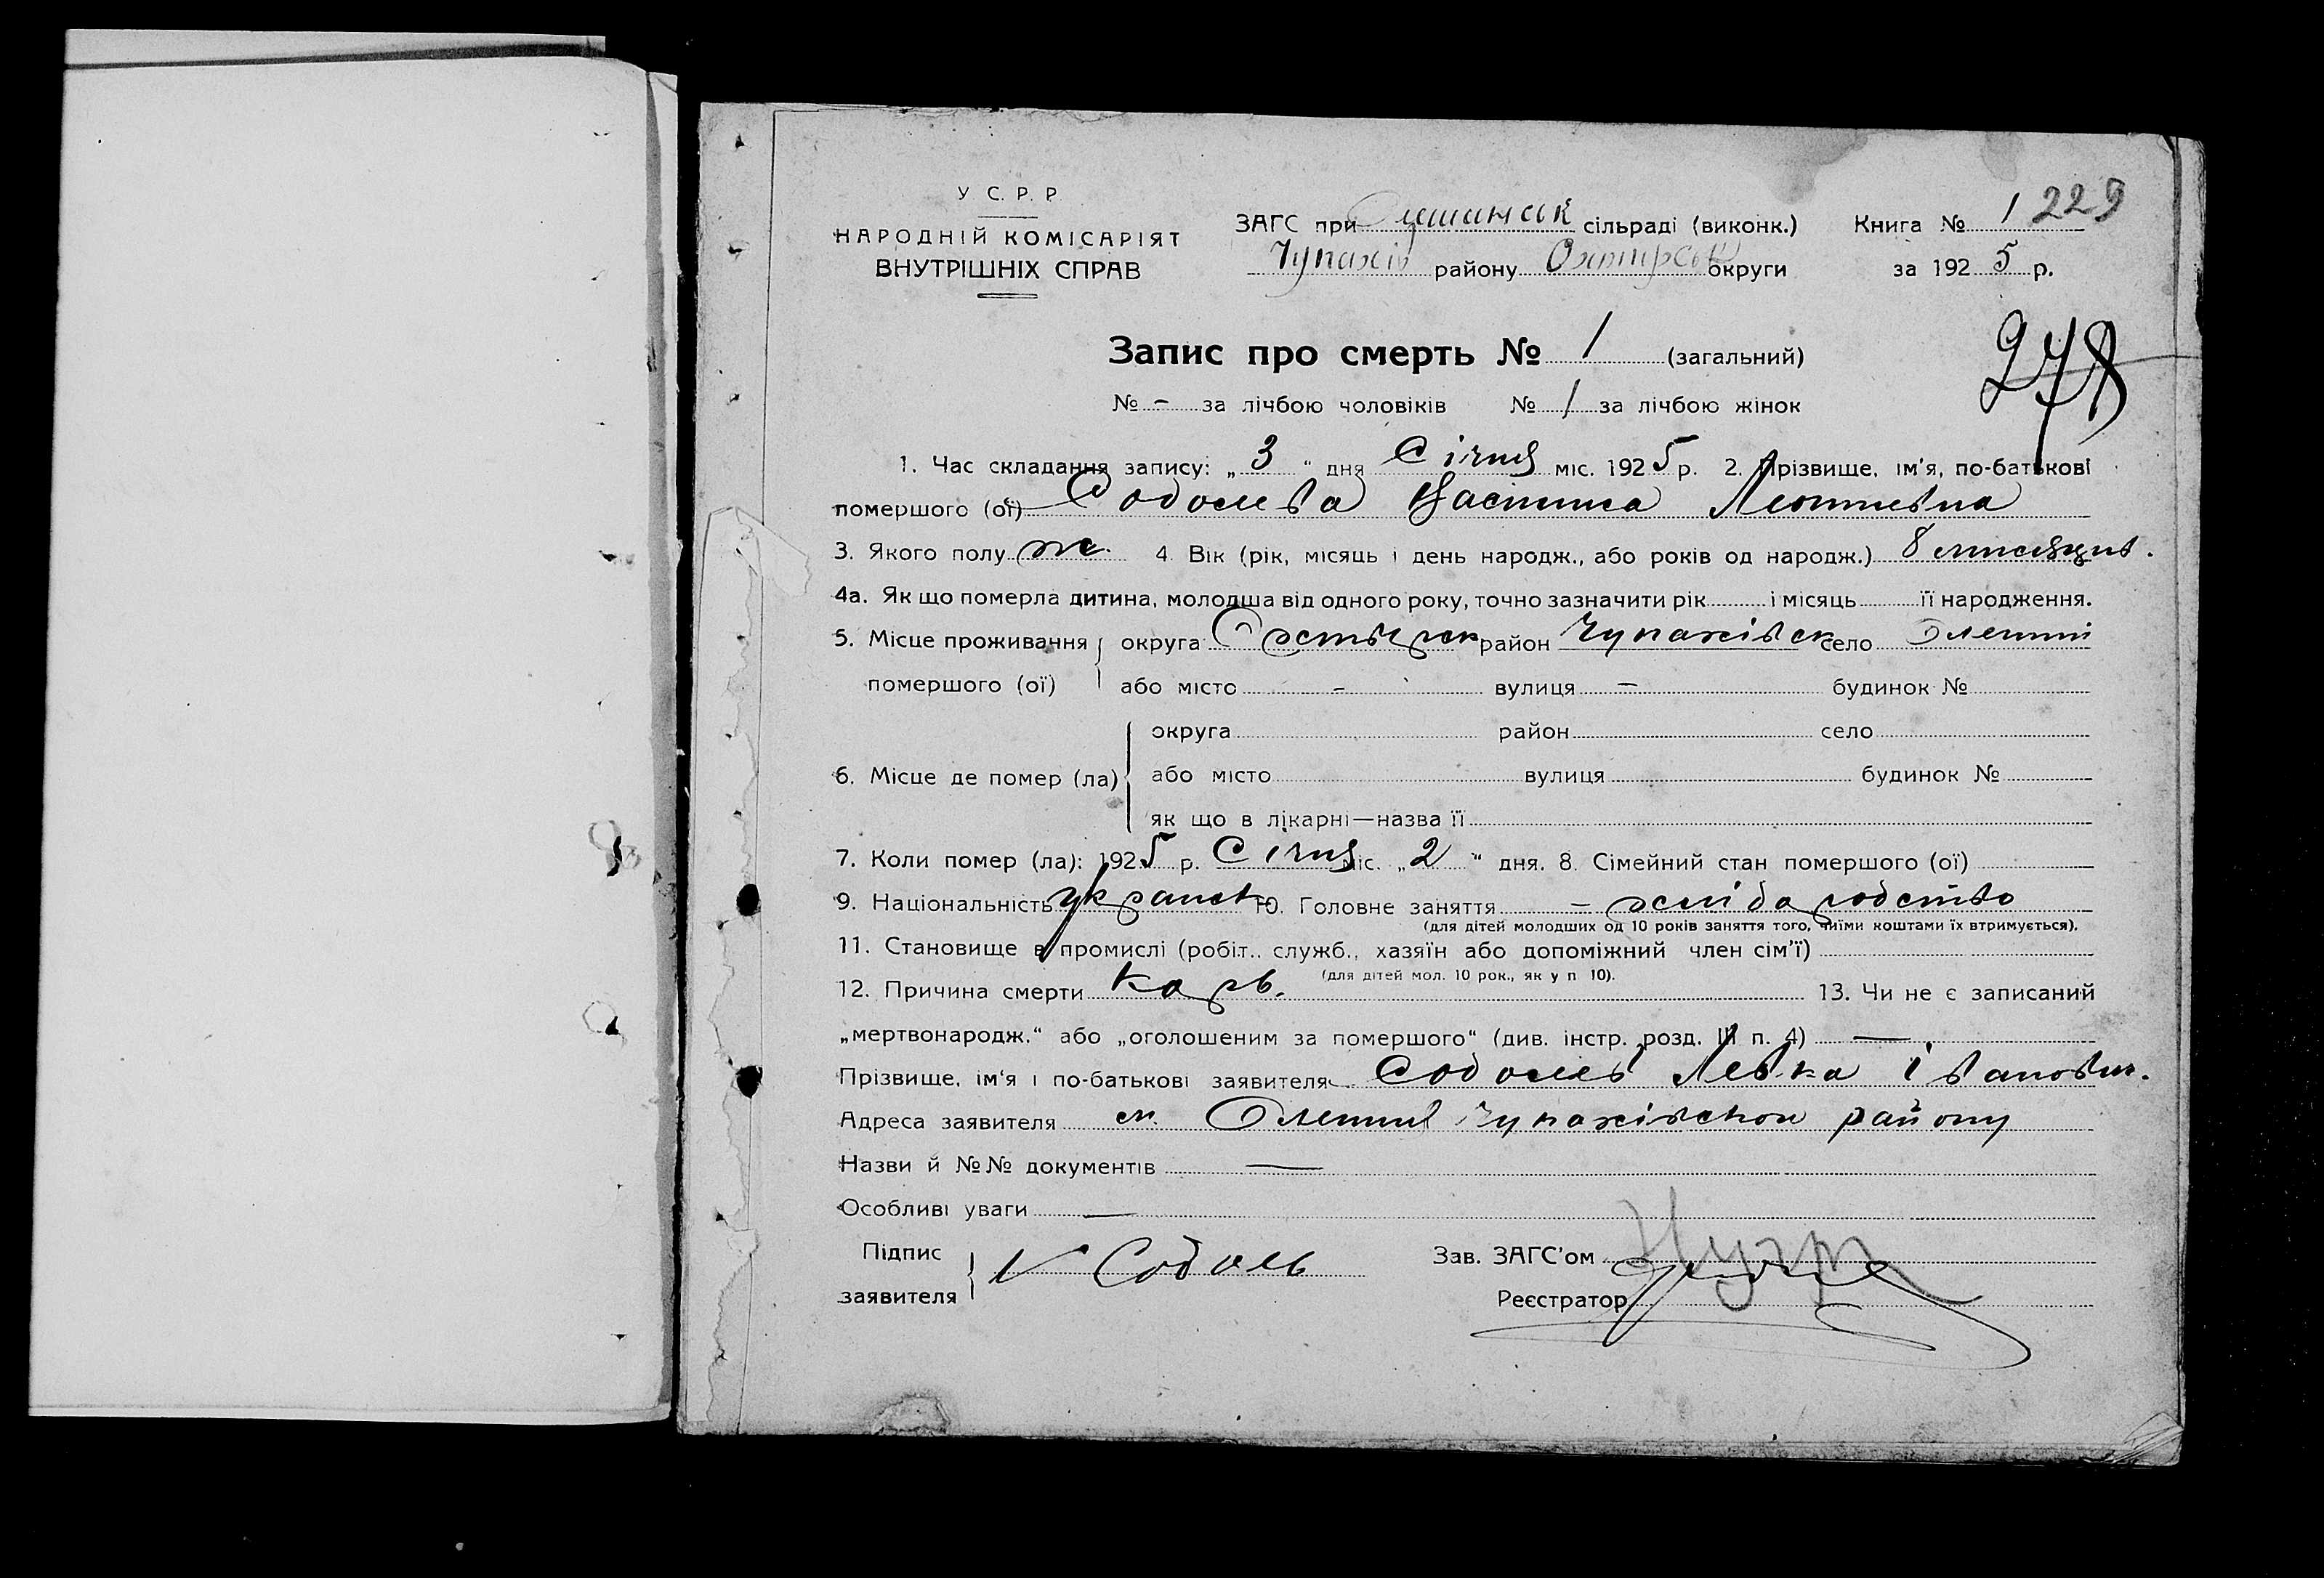 У С. Р. Р.
НАРОДНІЙ КОМІСАРІЯТ
ВНУТРІШНІХ СПРАВ
ЗАГС при Олешанськ сільраді (виконк.)
Чупахів району Охтирськ округи
Книга № 1 229
за 1925 р.
278
Запис про смерть № 1 (загальний)
№ - за лічбою чоловіків № 1 за лічбою жінок
1. Час складання запису: „ 3 “ дня Січня міс. 1925 р. 2. Прізвище, ім'я, по-батькові
помершого (ої) Соболева Леонтиевна
3. Якого полу ж. 4. Вік (рік, місяць і день народж., або років од народж.) 8 мисяцив.
4а. Як що померла дитина, молодша від одного року, точно зазначити рік і місяць її народження.
5. Місце проживання округа район Чупахівськ село Олешні
помершого (ої) або місто - вулиця — будинок №
округа район село
6. Місце де помер (ла) або місто вулиця будинок №
як що в лікарні—назва її
7. Коли помер (ла): 1925 р. Січня міс. „ 2 “ дня. 8. Сімейний стан помершого (ої)
9. Національність украинськ 10. Головне заняття — хліборобство
(для дітей молодших од 10 років заняття того, чиїми коштами їх втримується).
11. Становище в промислі (робіт., служб., хазяїн або допоміжний член сім'ї)
(для дітей мол. 10 рок., як у п 10).
12. Причина смерти корь. 13. Чи не є записаний
„мертвонародж.“ або „оголошеним за помершого“ (див. інстр. розд. III п. 4) —
Прізвище, ім'я і по-батькові заявителя Соболев Левка Іванович.
Адреса заявителя Чупахівского району
Назви й №№ документів —
Особливі уваги —
Підпис
заявителя Соболь
Зав. ЗАГС'ом
Реєстратор